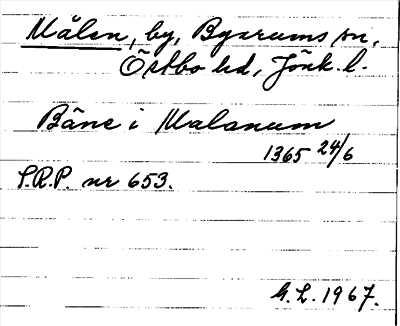 Målen, by, Byarums sn,
Östbo hd, Jönk. l.
Bäne i Malanum
1365 24/6
S.R.P. nr 653.
G.L. 1967.